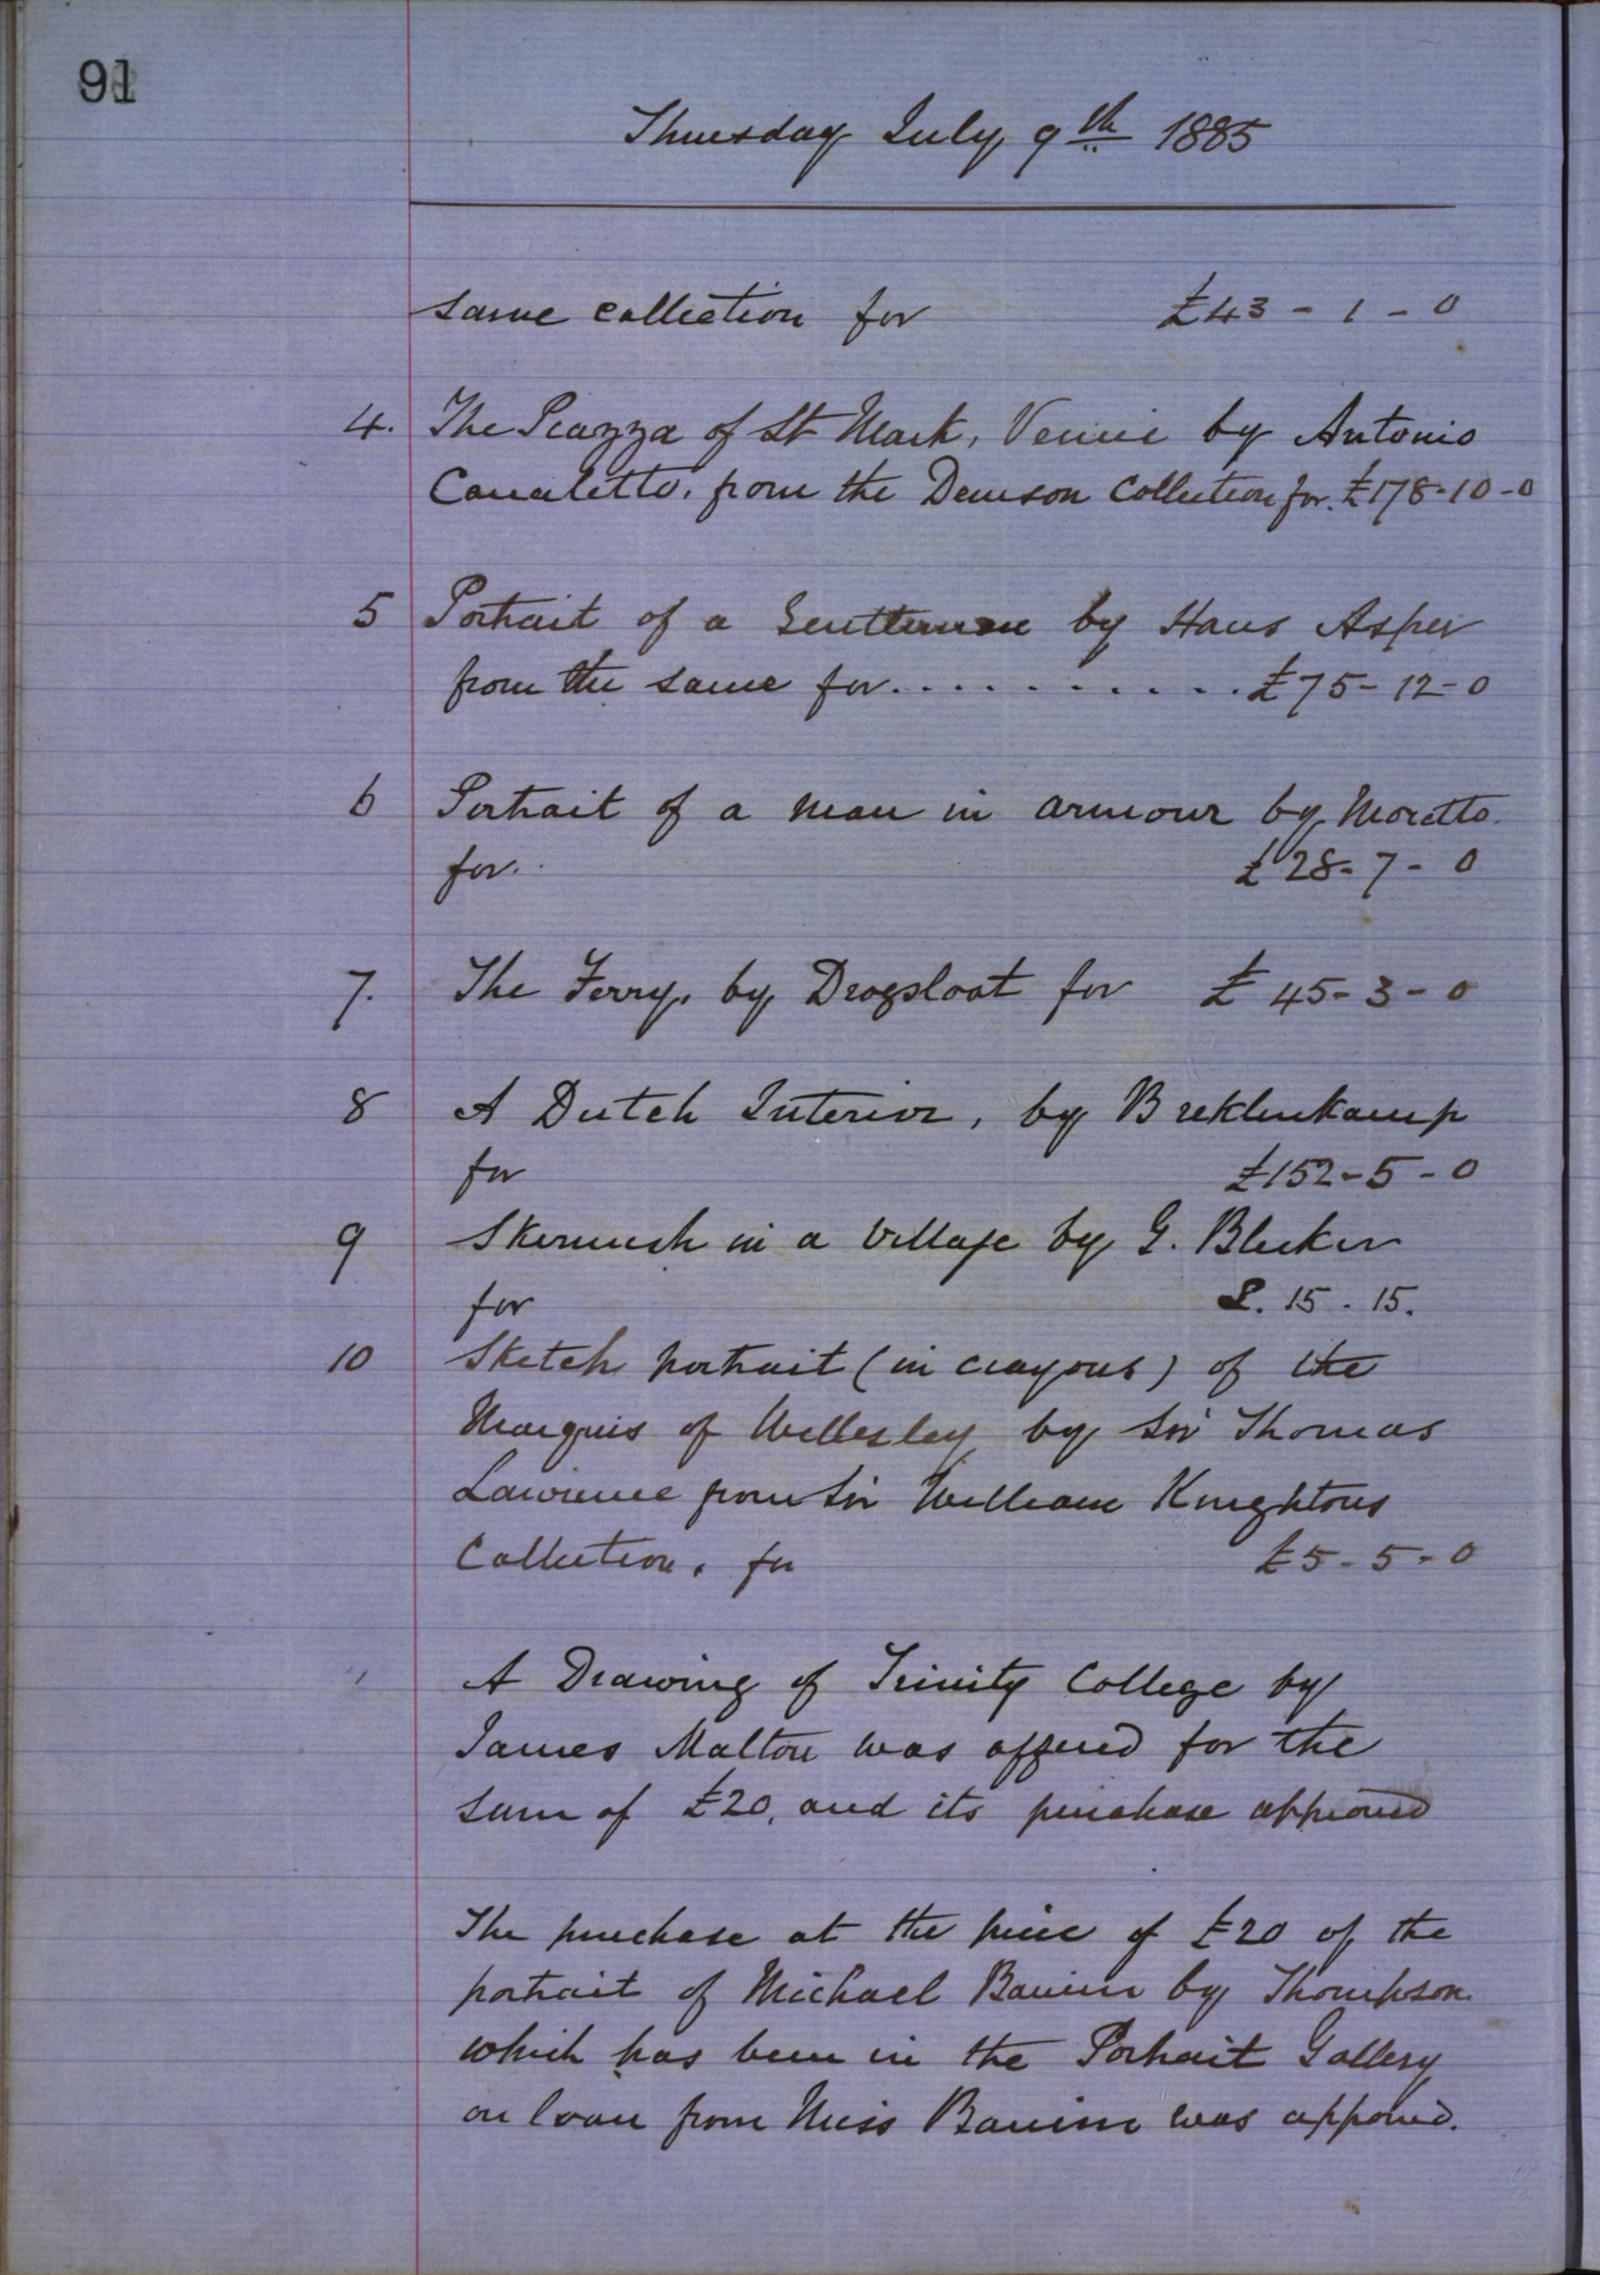 91
Thursday July 9th 1885
same collection for £43-1-0
4. The Piazza of St Mark, Venice by Antonio
Canaletto, from the Denison Collection for. £178-10-0
5 Portrait of a Gentleman by Hans Asper
from the same for............£75-12-0
6 Portrait of a man in armour by Moretto.
for.. £28-7-0
7. The Ferry, by Drogsloot for £45-3-0
8 A Dutch Interior, by Breklenkamp
for £152-5-0
9 Skirmish in a Village by G. Bleeker
for £.15.15.
10 Sketch portrait (in crayons) of the
Marquis of Wellesley by Sir Thomas
Lawrence from Sir William Knightons
Collection, for £5-5-0
A Drawing of Trinity College by
James Malton was offered for the
sum of £20, and its purchase approved
The purchase at the price of £20 of the
portrait of Michael Banim by Thompson
which has been in the Portrait Gallery
on loan from Miss Banim was approved.